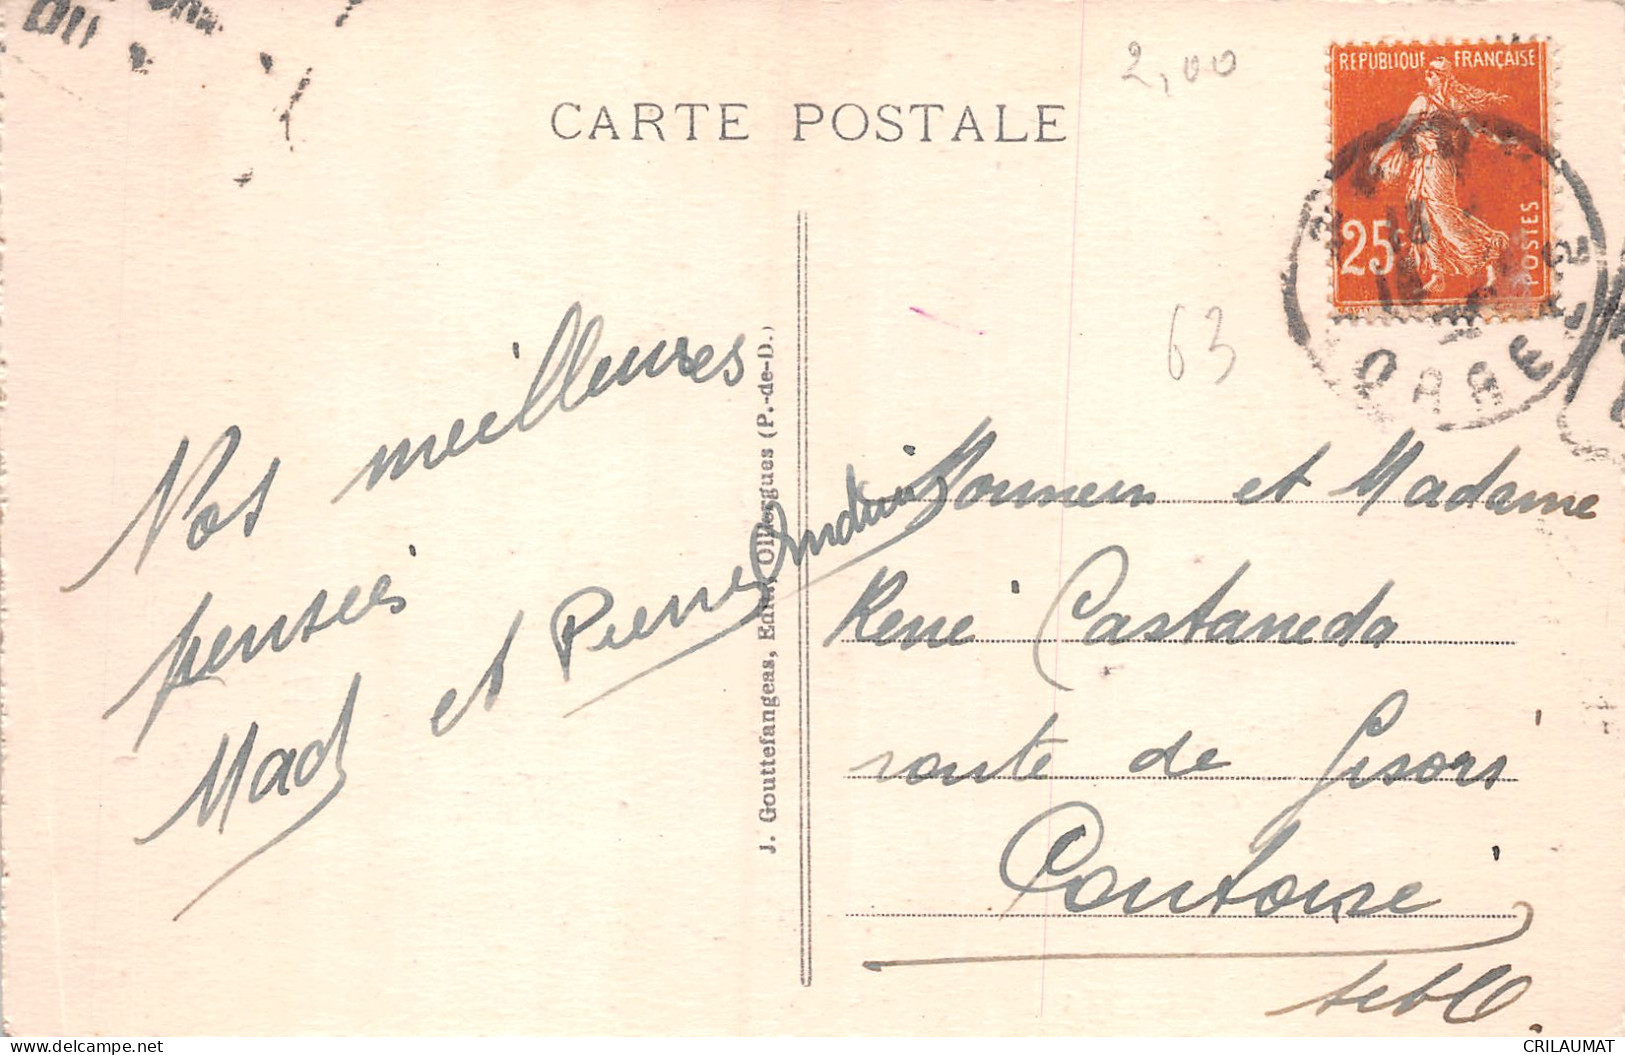 CARTE POSTALE
2,00
REPUBLIQUE FRANÇAISE
25c
POSTES
63
Nos meilleures
pensées
Mad et Pierre
J. Gouttefangeas, Edit., Olliergues (P.-de-D.)
et Madame
René Castaneda
route de Gisors
Pontoise
CRILAUMAT